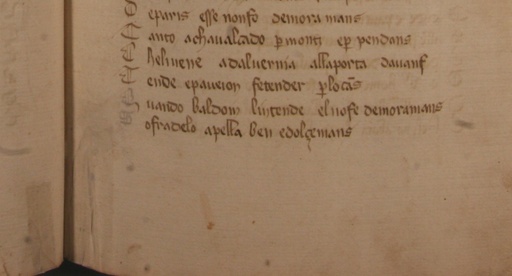 eparis esse nonso demora mans
anto achaualcādo ꝑ monti eꝑ pendans
heluene adaluernia allaporta dauanſ
ende epaueion fetender ꝑlocās
uando baldoin lintende elnose demoramans
ofradelo apella ben edolçemans